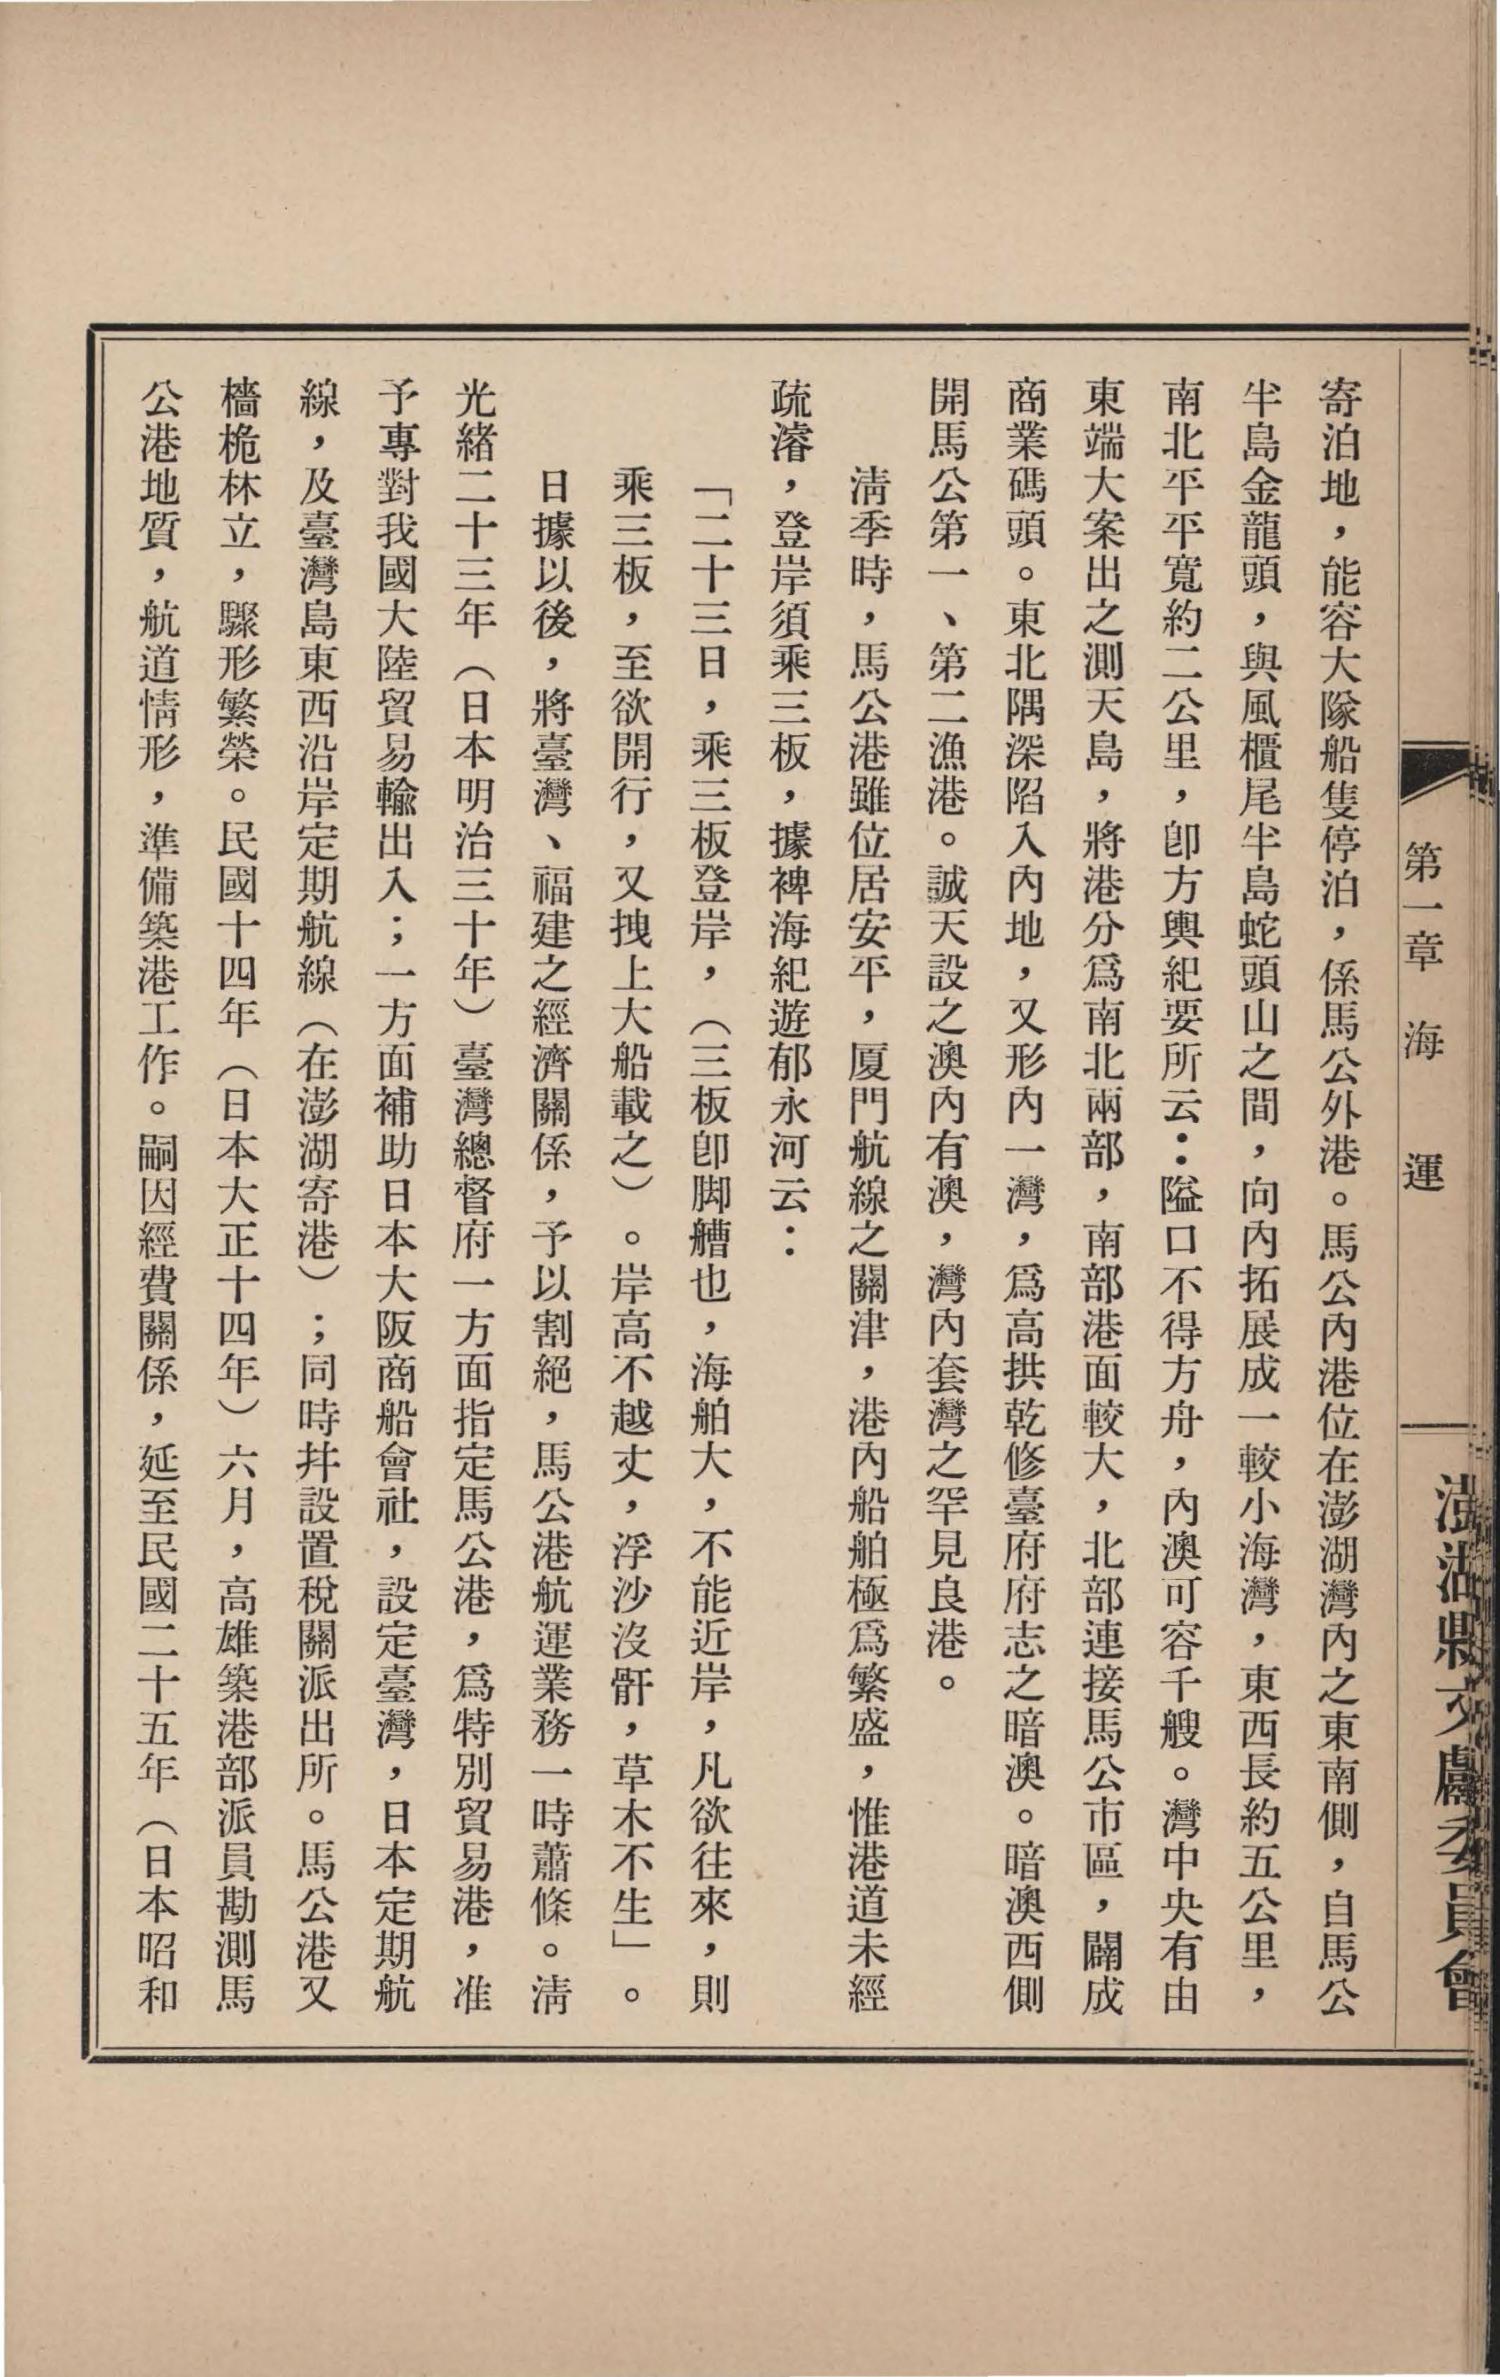 第一章　海　運
澎湖縣文獻委員會
寄泊地，能容大隊船隻停泊，係馬公外港。馬公內港位在澎湖灣內之東南側，自馬公
半島金龍頭，與風櫃尾半島蛇頭山之間，向內拓展成一較小海灣，東西長約五公里，
南北平平寬約二公里，卽方輿紀要所云：隘口不得方舟，內澳可容千艘。灣中央有由
東端大案出之測天島，將港分爲南北兩部，南部港面較大，北部連接馬公市區，闢成
商業碼頭。東北隅深陷入內地，又形內一灣，爲高拱乾修臺府府志之暗澳。暗澳西側
開馬公第一、第二漁港。誠天設之澳內有澳，灣內套灣之罕見良港。
淸季時，馬公港雖位居安平，厦門航線之關津，港內船舶極爲繁盛，惟港道未經
疏濬，登岸須乘三板，據裨海紀遊郁永河云：
「二十三日，乘三板登岸，（三板卽脚艚也，海舶大，不能近岸，凡欲往來，則
乘三板，至欲開行，又拽上大船載之）。岸高不越丈，浮沙沒骭，草木不生」。
日據以後，將臺灣、福建之經濟關係，予以割絕，馬公港航運業務一時蕭條。淸
光緒二十三年（日本明治三十年）臺灣總督府一方面指定馬公港，爲特別貿易港，准
予專對我國大陸貿易輸出入；一方面補助日本大阪商船會社，設定臺灣，日本定期航
線，及臺灣島東西沿岸定期航線（在澎湖寄港）；同時幷設置稅關派出所。馬公港又
檣桅林立，驟形繁榮。民國十四年（日本大正十四年）六月，高雄築港部派員勘測馬
公港地質，航道情形，準備築港工作。嗣因經費關係，延至民國二十五年（日本昭和